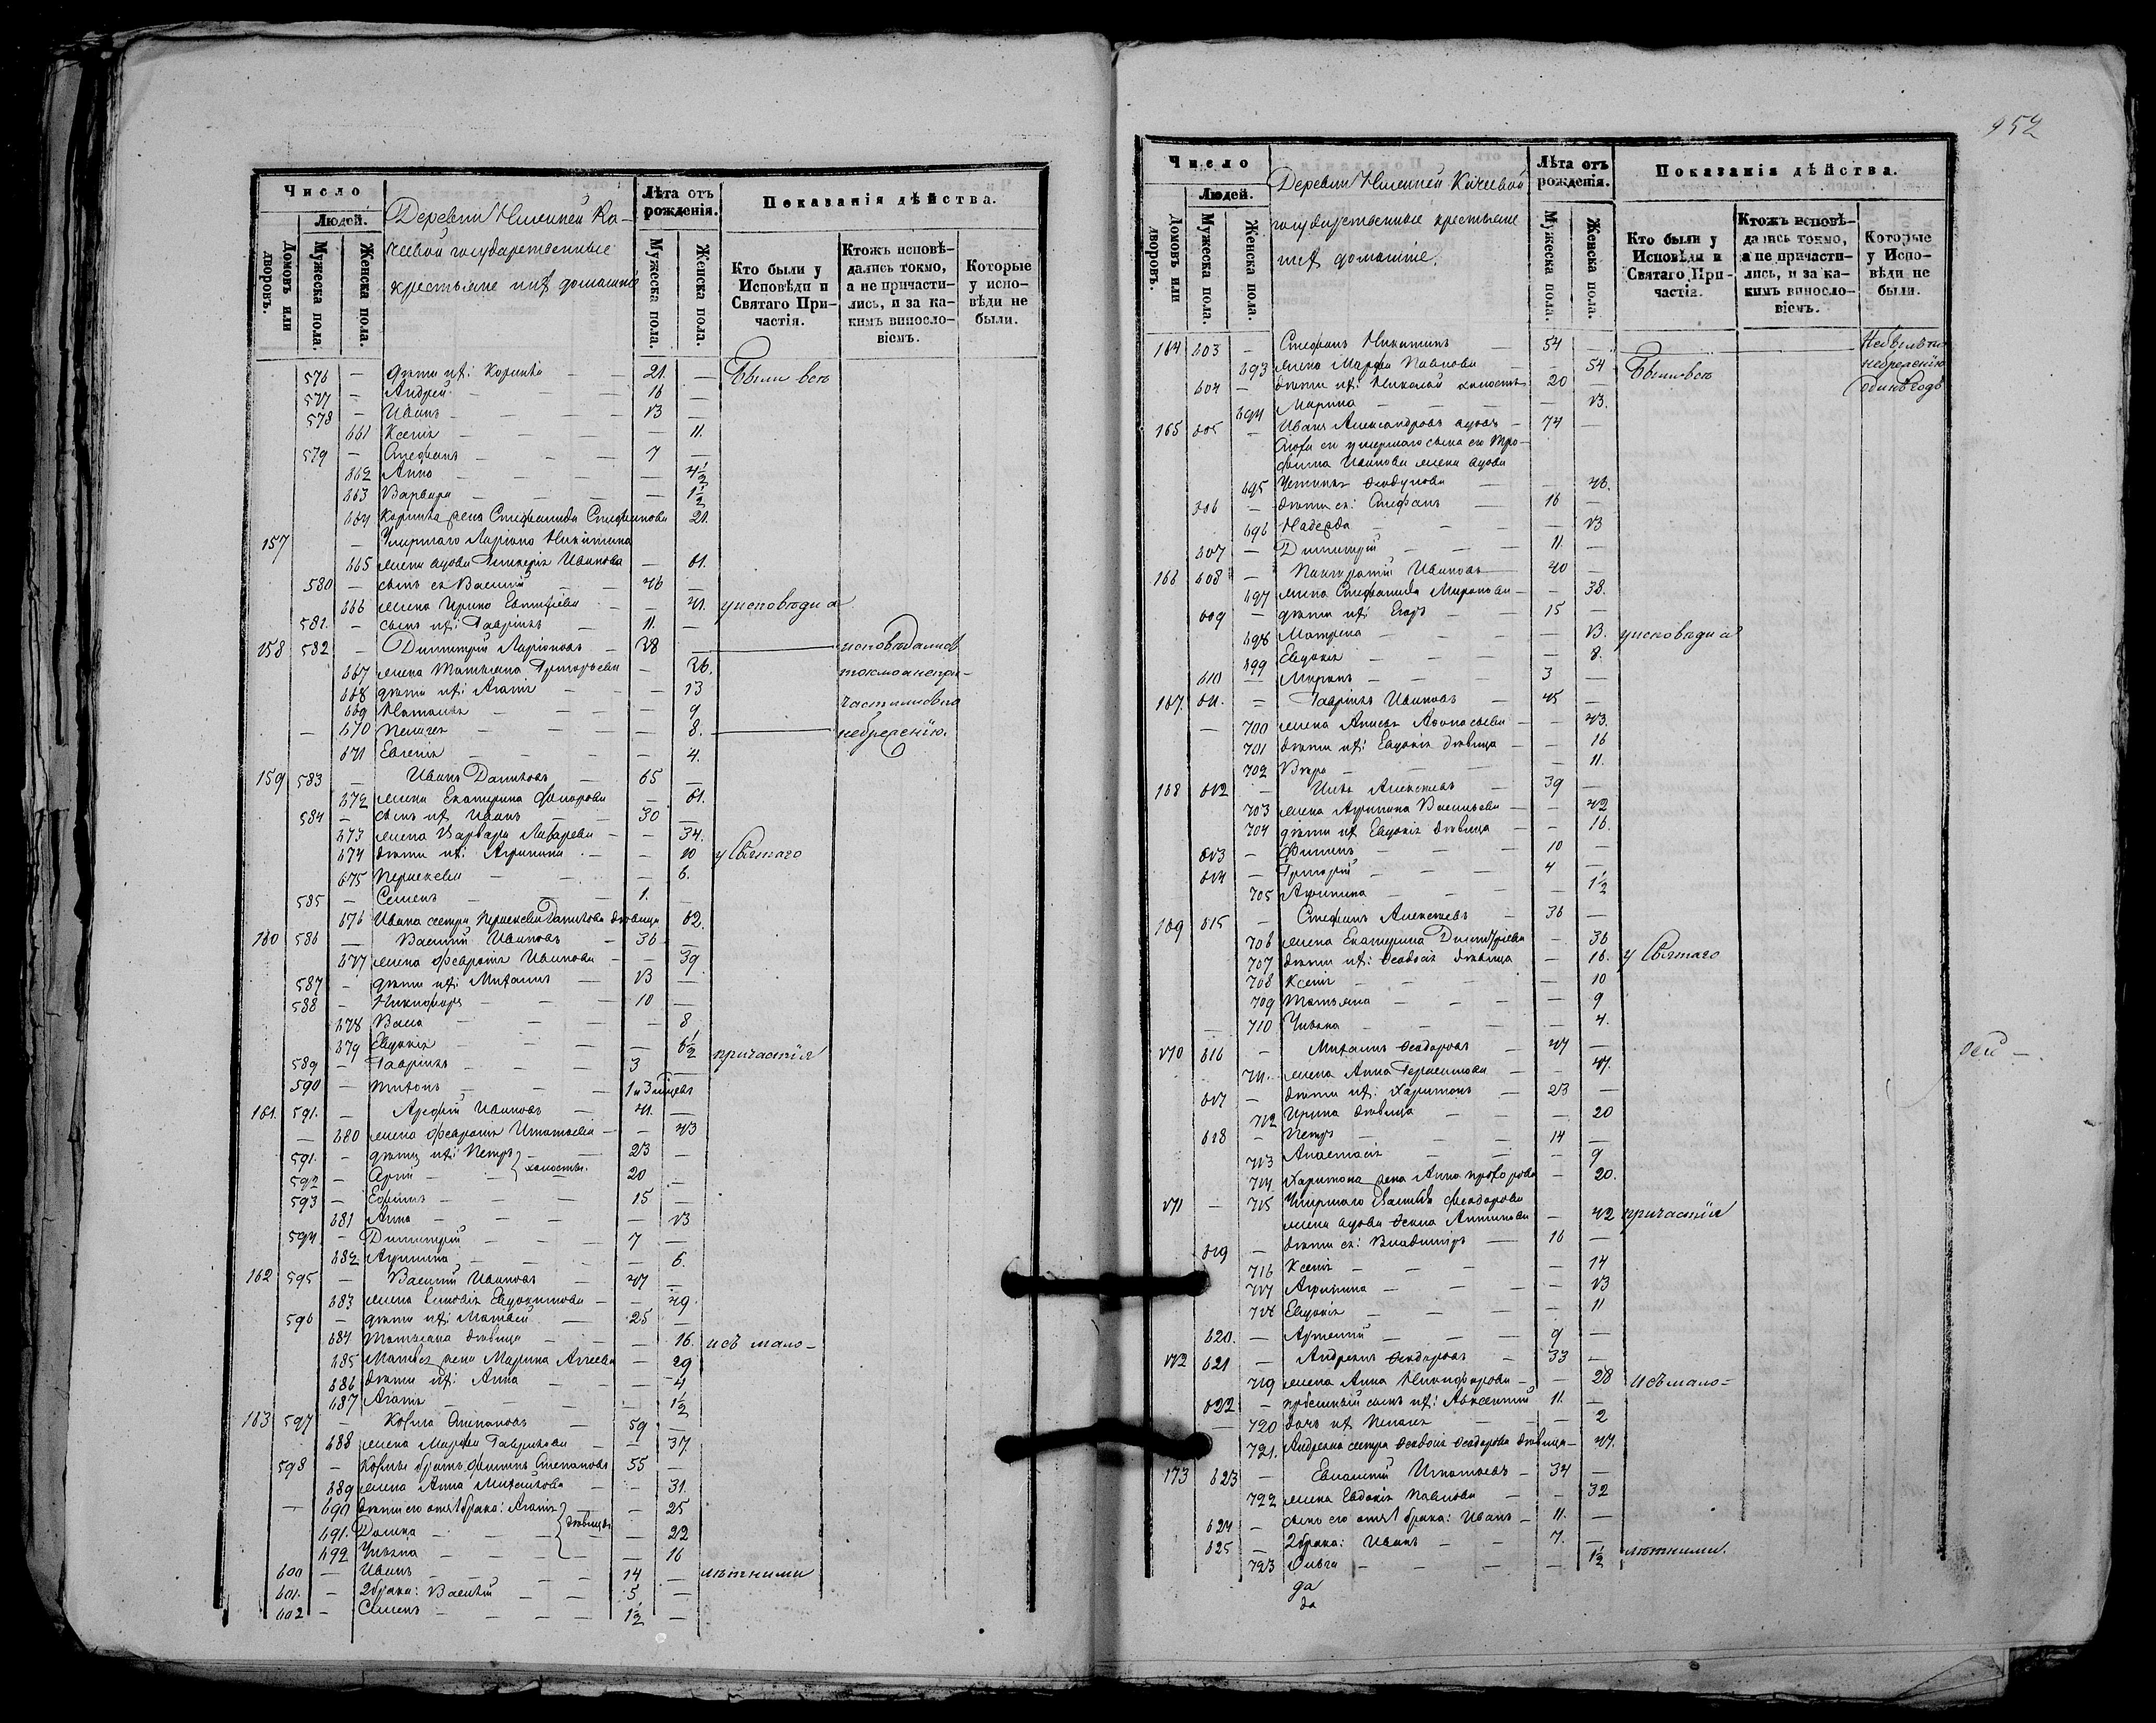 Число
Людей.
Домовъ или дворовъ.
Мужеска пола.
Женска пола.
Деревни Нижней Ка-
чевой государственные
крестьяне и ихъ домашніе
Лѣта отъ рожденія.
Мужеска пола.
Женска пола.
Показанія дѣйства.
Кто были у Исповѣди и Святаго Причастія.
Ктожъ исповѣдались токмо, а не причастились, и за какимъ винословіемъ.
Которые у исповѣди не были.
576 — дѣти ихъ: Корнилій — 21. — Были всѣ
577 — Андрей — 16 —
578 — Иванъ — 13 —
661 Ксенія — — 11.
579 — Стефанъ — 7 —
662 Анна — — 4½
663 Варвара — — 1½
664 Корнила жена Степанида Стефанова 21.
157 — Умершаго Ларіона Никитина
665 жена вдова Гликерія Иванова — 61.
580 — сынъ ея Василій — 46 —
666 жена Ирина Евтифіева — — 41. у исповѣди и
581. — сынъ ихъ: Гавріилъ — 11. —
158 582 — Димитрій Ларіоновъ — 28 — исповѣдались
667 жена Татьяна Григорьева — 26. токмо а не при-
668 дѣти ихъ: Агапія — — 13 частились по
669 Наталія — — 9
670 Пелагея — — 8. небреженію.
671 Евгенія — — 4.
159 583 — Иванъ Даниловъ — 65 —
672 жена Екатерина Фаворова — 61.
584 — сынъ ихъ Иванъ — 30 —
673 жена Варвара Лазарева — — 34.
674 дѣти ихъ: Агрипина — — 10 у Святаго
675 Параскева — — 6.
585 — Семенъ — 1. —
676 Ивана сестра Параскева Данилова дѣвица 62.
160 586 — Василій Ивановъ — 36 —
677 жена Февронія Иванова — — 39
587 — дѣти ихъ: Михаилъ — 13 —
588 — Никифоръ — 10 —
678 Васса — — 8
679 Евдокія — — 6½
589 — Гавріилъ — 3 — причастія
590 — Тихонъ — 1 и 3 мѣсяц.
161. 591. — Арефій Ивановъ — 41. —
— 680 жена Февронія Игнатьева — — 43
591. — дѣти ихъ: Петръ — 23 —
592 — Арій — холосты. 20 —
593 — Ефимъ — 15 —
681 Анна — — 13
594 — Димитрій — 7 —
682 Агрипина — — 6.
162 595 — Василій Ивановъ — 47 —
683 жена Зиновія Евдокимова — — 49.
596 — дѣти ихъ: Матвей — 25 —
684 Татьяна дѣвица — — 16. и съ мало-
685 Матвея жена Марина Агеева — 29
686 дѣти ихъ: Анна — — 4
687 Агапія — — 1½
163 597 — Козма Степановъ — 59 —
688 жена Марфа Гаврилова — — 37.
598 — Козмы братъ Филипъ Степановъ 55 —
689 жена Анна Михайлова — — 31.
— 690 дѣти его отъ 1 брака: Агапія — — 25
691. Домна — дѣвицы — 22
692 Ульяна — — 16
600 — Иванъ — 14 — лѣтними
601. — 2 брака: Василій — 5. —
602 — Семенъ — 1½ —
952
Число
Людей.
Домовъ или дворовъ.
Мужеска пола.
Женска пола.
Деревни Нижней Качевой
государственные крестьяне
и ихъ домашніе.
Лѣта отъ рожденія.
Мужеска пола.
Женска пола.
Показанія дѣйства.
Кто были у Исповѣди и Святаго Причастія.
Ктожъ исповѣдались токмо, а не причастились, и за какимъ винословіемъ.
Которые у Исповѣди не были.
164 603 — Стефанъ Никитинъ — 54 — Небылъ по
693 жена Марфа Павлова — — 54 Были всѣ небреженію
604 — дѣти ихъ: Николай холостъ 20 — одинъ годъ
694 Марина — — 13.
165 605 — Иванъ Александровъ вдовъ — 74 —
Сноха его умершаго сына его Тро-
фима Иванова жена вдова
695 Устинія Феодулова — — 46.
606 — дѣти ея: Стефанъ — 16 —
696 Надежда — — 13
607 — Димитрій — 11. —
166 608 — Панкратій Ивановъ — 40 —
697 жена Степанида Миронова — — 38.
609 — дѣти ихъ: Егоръ — 15 —
698 Матрена — — 13. у исповѣди и
699 Евдокія — — 8.
610 — Миронъ — 3 —
167. 611. — Гавріилъ Ивановъ — 45 —
— 700 жена Анисья Афонасьева — — 43.
701 дѣти ихъ: Евдокія дѣвица — — 16
702 Вѣра — — 11.
168 612 — Илья Алексѣевъ — 39 —
703 жена Агрипина Васильева — — 42
704 дѣти ихъ Евдокія дѣвица — — 16.
613 — Филипъ — 10 —
614 — Григорій — 4 —
705 Агрипина — — 1½
169 615 — Стефанъ Алексѣевъ — 36 —
706 жена Екатерина Димитріева — 36
707 дѣти ихъ: Феодосія дѣвица — 16. у Святаго
708 Ксенія — — 10
709 Татьяна — — 9
— 710 Ульяна — — 4.
170 616 — Михаилъ Феодоровъ — 47 —
711. жена Анна Герасимова — — 47.
617 — дѣти ихъ: Харитонъ — 23 —
712 Ирина дѣвица — — 20
618 — Петръ — 14 —
713 Анастасія — — 9
714 Харитона жена Анна Прохорова — 20.
171 — 715 Умершаго Феодорова
жена вдова Антипова — 42 причастія
619 — дѣти ея: Владимиръ — 16 —
716 Ксенія — — 14
717 Агрипина — — 13
718 Евдокія — — 11
620. — Артемій — 9 —
172 621 — Андреянъ Феодоровъ — 33 —
719 жена Анна Никифорова — — 28 и съ мало-
622 — сынъ ихъ: Авксентій 11. —
— 720 дочь ихъ Пелагея — — 2
721. Андреяна сестра Феодосія Феодорова дѣвица — 47.
173 623 — Евлампій Игнатьевъ — 34 —
722 жена Евдокія Павлова — — 32
624 — сынъ его отъ 1 брака: Иванъ — 11. —
625 — 2 брака: Иванъ — 7. —
723 Ольга — — 1½ лѣтними.
да
да